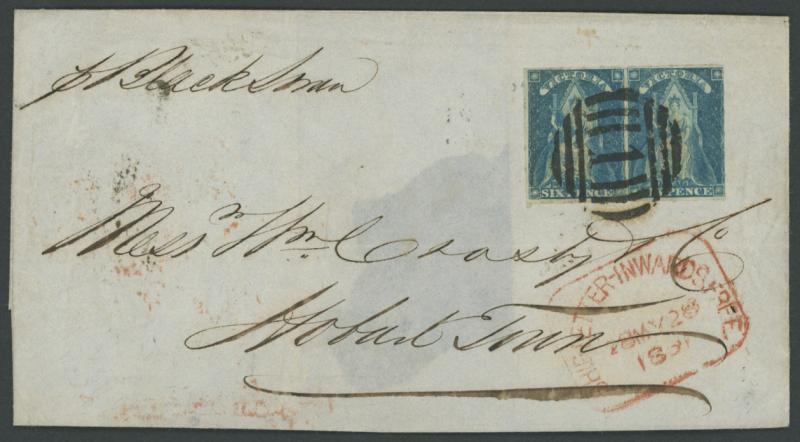 p Black Swan
VICTORIA VICTORIA
SIX PENCE PENCE
1
Messrs Wm Crosby & Co
Hobart Town
SHIP LETTER INWARDS FREE
MY 28